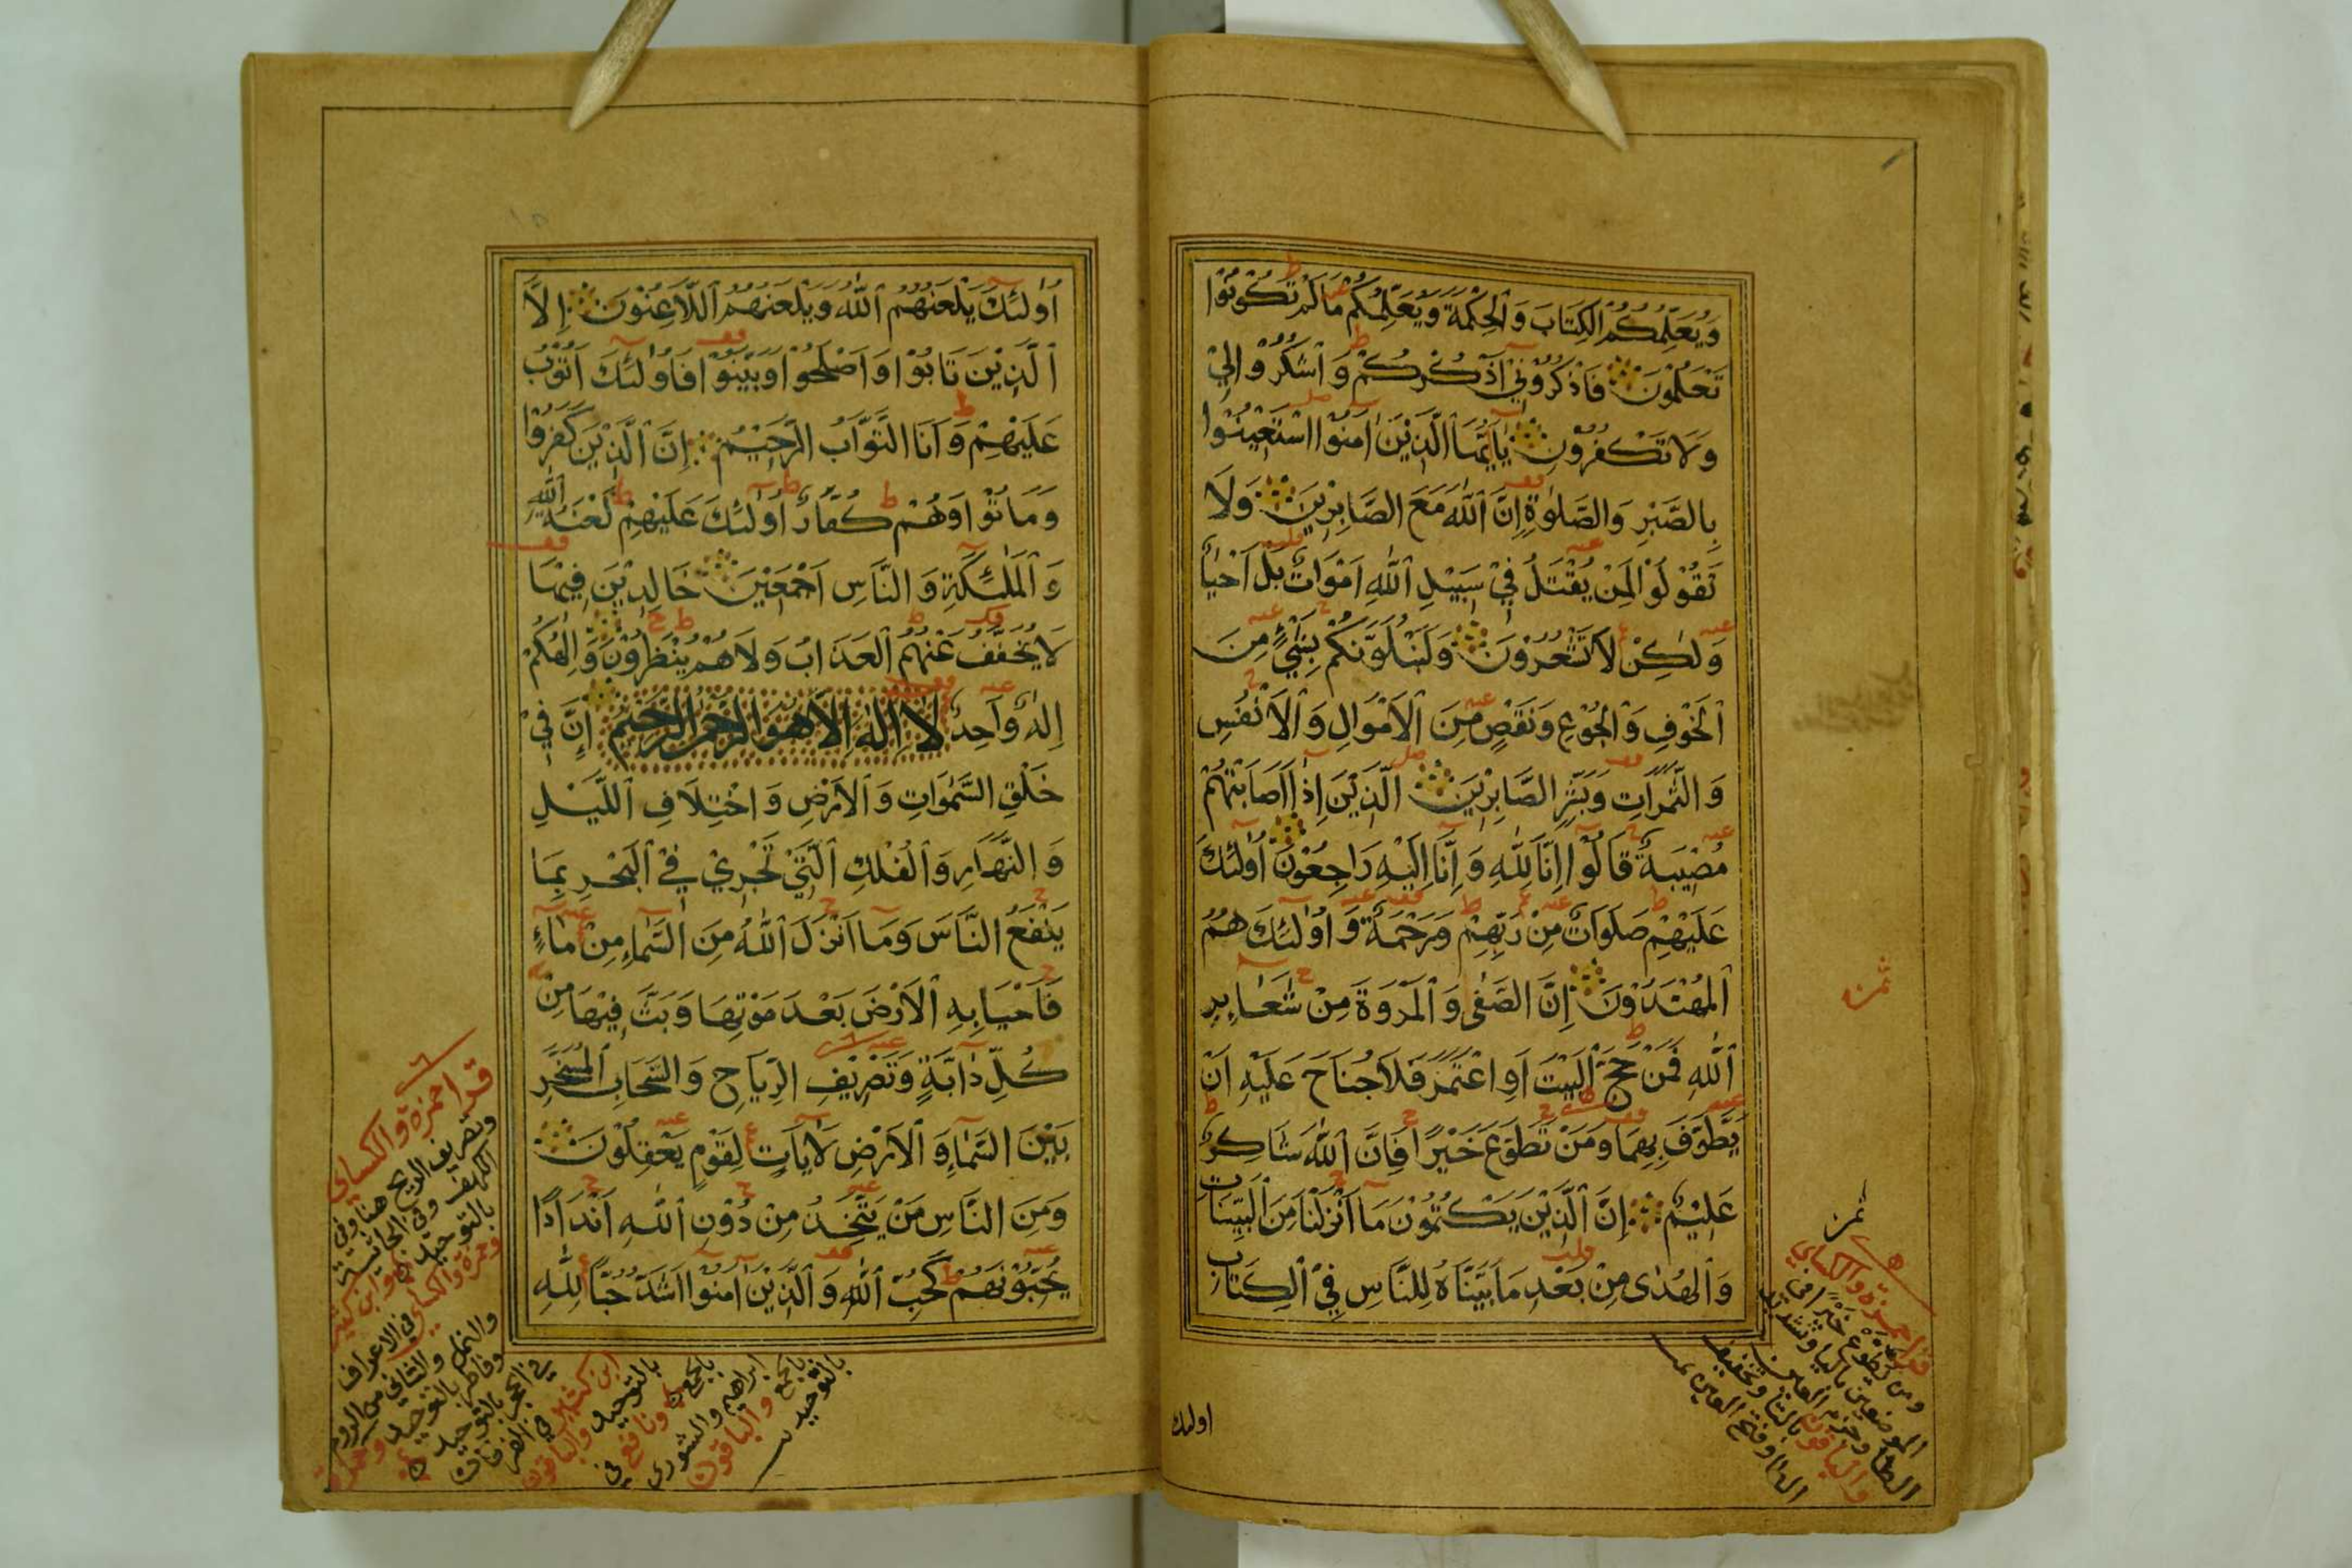 وَيُعَلِّمُكُمُ الْكِتَابَ وَالْحِكْمَةَ وَيُعَلِّمُكُمْ مَا لَمْ تَكُونُوا
تَعْلَمُونَ فَاذْكُرُونِي أَذْكُرْكُمْ وَاشْكُرُوا لِي
وَلَا تَكْفُرُونِ يَا أَيُّهَا الَّذِينَ آمَنُوا اسْتَعِينُوا
بِالصَّبْرِ وَالصَّلٰوةِ إِنَّ اللهَ مَعَ الصَّابِرِينَ وَلَا
تَقُولُوا لِمَنْ يُقْتَلُ فِي سَبِيلِ اللهِ أَمْوَاتٌ بَلْ أَحْيَاءٌ
وَلٰكِنْ لَا تَشْعُرُونَ وَلَنَبْلُوَنَّكُمْ بِشَيْءٍ مِنَ
الْخَوْفِ وَالْجُوعِ وَنَقْصٍ مِنَ الْأَمْوَالِ وَالْأَنْفُسِ
وَالثَّمَرَاتِ وَبَشِّرِ الصَّابِرِينَ الَّذِينَ إِذَا أَصَابَتْهُمْ
مُصِيبَةٌ قَالُوا إِنَّا لِلّٰهِ وَإِنَّا إِلَيْهِ رَاجِعُونَ أُولٰئِكَ
عَلَيْهِمْ صَلَوَاتٌ مِنْ رَبِّهِمْ وَرَحْمَةٌ وَأُولٰئِكَ هُمُ
الْمُهْتَدُونَ إِنَّ الصَّفٰى وَالْمَرْوَةَ مِنْ شَعَايِرِ
اللهِ فَمَنْ حَجَّ الْبَيْتَ أَوِ اعْتَمَرَ فَلَا جُنَاحَ عَلَيْهِ أَنْ
يَطَّوَّفَ بِهِمَا وَمَنْ تَطَوَّعَ خَيْرًا فَإِنَّ اللهَ شَاكِرٌ
عَلِيمٌ إِنَّ الَّذِينَ يَكْتُمُونَ مَا أَنْزَلْنَا مِنَ الْبَيِّنَاتِ
وَالْهُدٰى مِنْ بَعْدِ مَا بَيَّنَّاهُ لِلنَّاسِ فِي الْكِتَابِ
ثمن
ثمن
قرأ حمزة والكسائي
ومن تطوع خيرا في
الموضعين باليا وتشديد
الطا وجزم العين
والباقون بالتا وتخفيف
الطا وفتح العين
اولئك
أُولٰئِكَ يَلْعَنُهُمُ اللهُ وَيَلْعَنُهُمُ اللَّاعِنُونَ إِلَّا
الَّذِينَ تَابُوا وَأَصْلَحُوا وَبَيَّنُوا فَأُولٰئِكَ أَتُوبُ
عَلَيْهِمْ وَأَنَا التَّوَّابُ الرَّحِيمُ إِنَّ الَّذِينَ كَفَرُوا
وَمَاتُوا وَهُمْ كُفَّارٌ أُولٰئِكَ عَلَيْهِمْ لَعْنَةُ اللهِ
وَالْمَلٰئِكَةِ وَالنَّاسِ أَجْمَعِينَ خَالِدِينَ فِيهَا
لَا يُخَفَّفُ عَنْهُمُ الْعَذَابُ وَلَا هُمْ يُنْظَرُونَ وَإِلٰهُكُمْ
إِلٰهٌ وَاحِدٌ لَا إِلٰهَ إِلَّا هُوَ الرَّحْمٰنُ الرَّحِيمُ إِنَّ فِي
خَلْقِ السَّمٰوَاتِ وَالْأَرْضِ وَاخْتِلَافِ اللَّيْلِ
وَالنَّهَارِ وَالْفُلْكِ الَّتِي تَجْرِي فِي الْبَحْرِ بِمَا
يَنْفَعُ النَّاسَ وَمَا أَنْزَلَ اللهُ مِنَ السَّمَاءِ مِنْ مَاءٍ
فَأَحْيَا بِهِ الْأَرْضَ بَعْدَ مَوْتِهَا وَبَثَّ فِيهَا مِنْ
كُلِّ دَابَّةٍ وَتَصْرِيفِ الرِّيَاحِ وَالسَّحَابِ الْمُسَخَّرِ
بَيْنَ السَّمَاءِ وَالْأَرْضِ لَآيَاتٍ لِقَوْمٍ يَعْقِلُونَ
وَمِنَ النَّاسِ مَنْ يَتَّخِذُ مِنْ دُونِ اللهِ أَنْدَادًا
يُحِبُّونَهُمْ كَحُبِّ اللهِ وَالَّذِينَ آمَنُوا أَشَدُّ حُبًّا لِلّٰهِ
قرا حمزة والكسائي
وتصريف الريح هنا وفي
الكهف وفي الجاثية
بالتوحيد وابن كثير
وحمزة والكسائي في الاعراف
والنمل والثاني من الروم
وفاطر بالتوحيد وحمزة
في الحجر بالتوحيد
ابن كثير في الفرقان
بالتوحيد والباقون
بالجمع ونافع في
ابراهيم والشورى
بالجمع والباقون
بالتوحيد